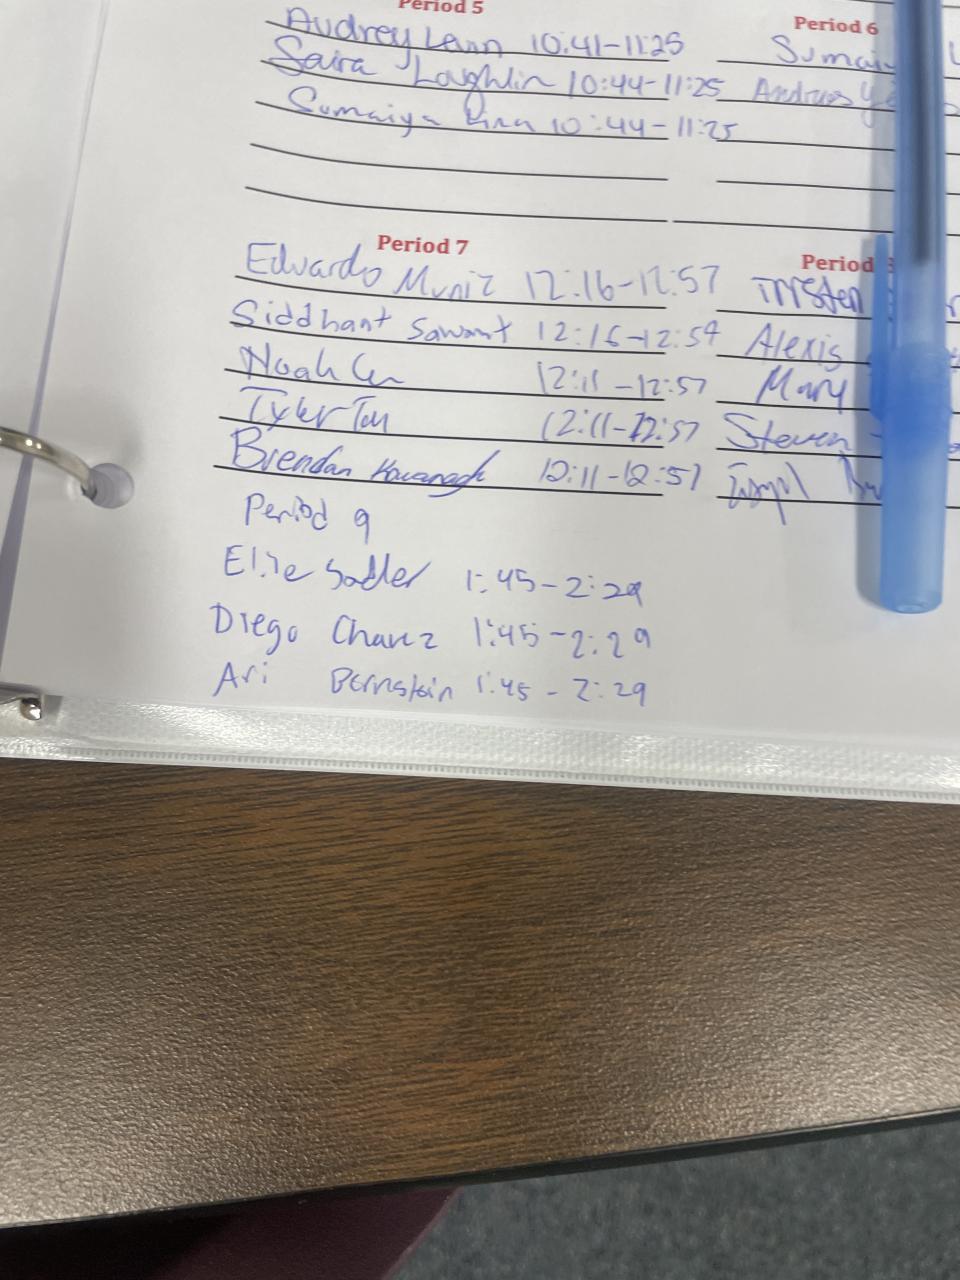 Period 5
Audrey Lenn 10:41-11:25
Saira Loughlin 10:44-11:25
Sumaiya 10:44-11:25
Period 6
Sumai
Andres
Period 7
Eduardo Muniz 12:16-12:57
Siddhant Sawant 12:16-12:57
Noah 12:11-12:57
Tyler Tan 12:11-12:57
Brendan Kavanagh 12:11-12:57
Period
Tristen
Alexis
Mary
Steven
Period 9
Ellie Sadler 1:45-2:29
Diego Chavez 1:45-2:29
Ari Bernstein 1:45-2:29